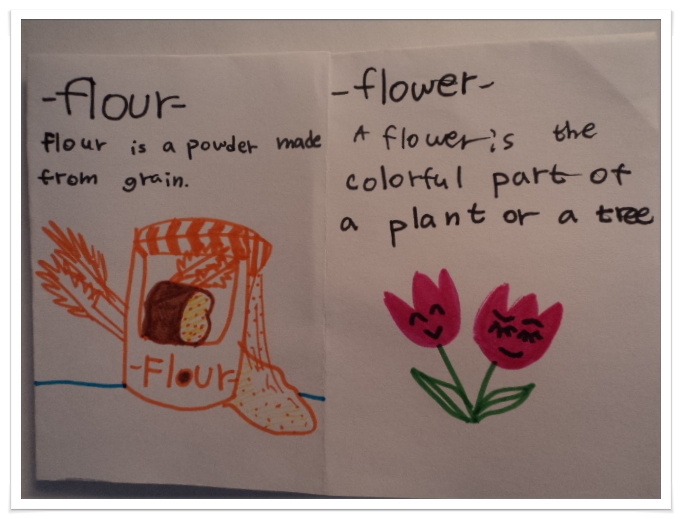 -flour-
flour is a powder made
from grain.
-Flour-
-flower-
A flower is the
colorful part of
a plant or a tree